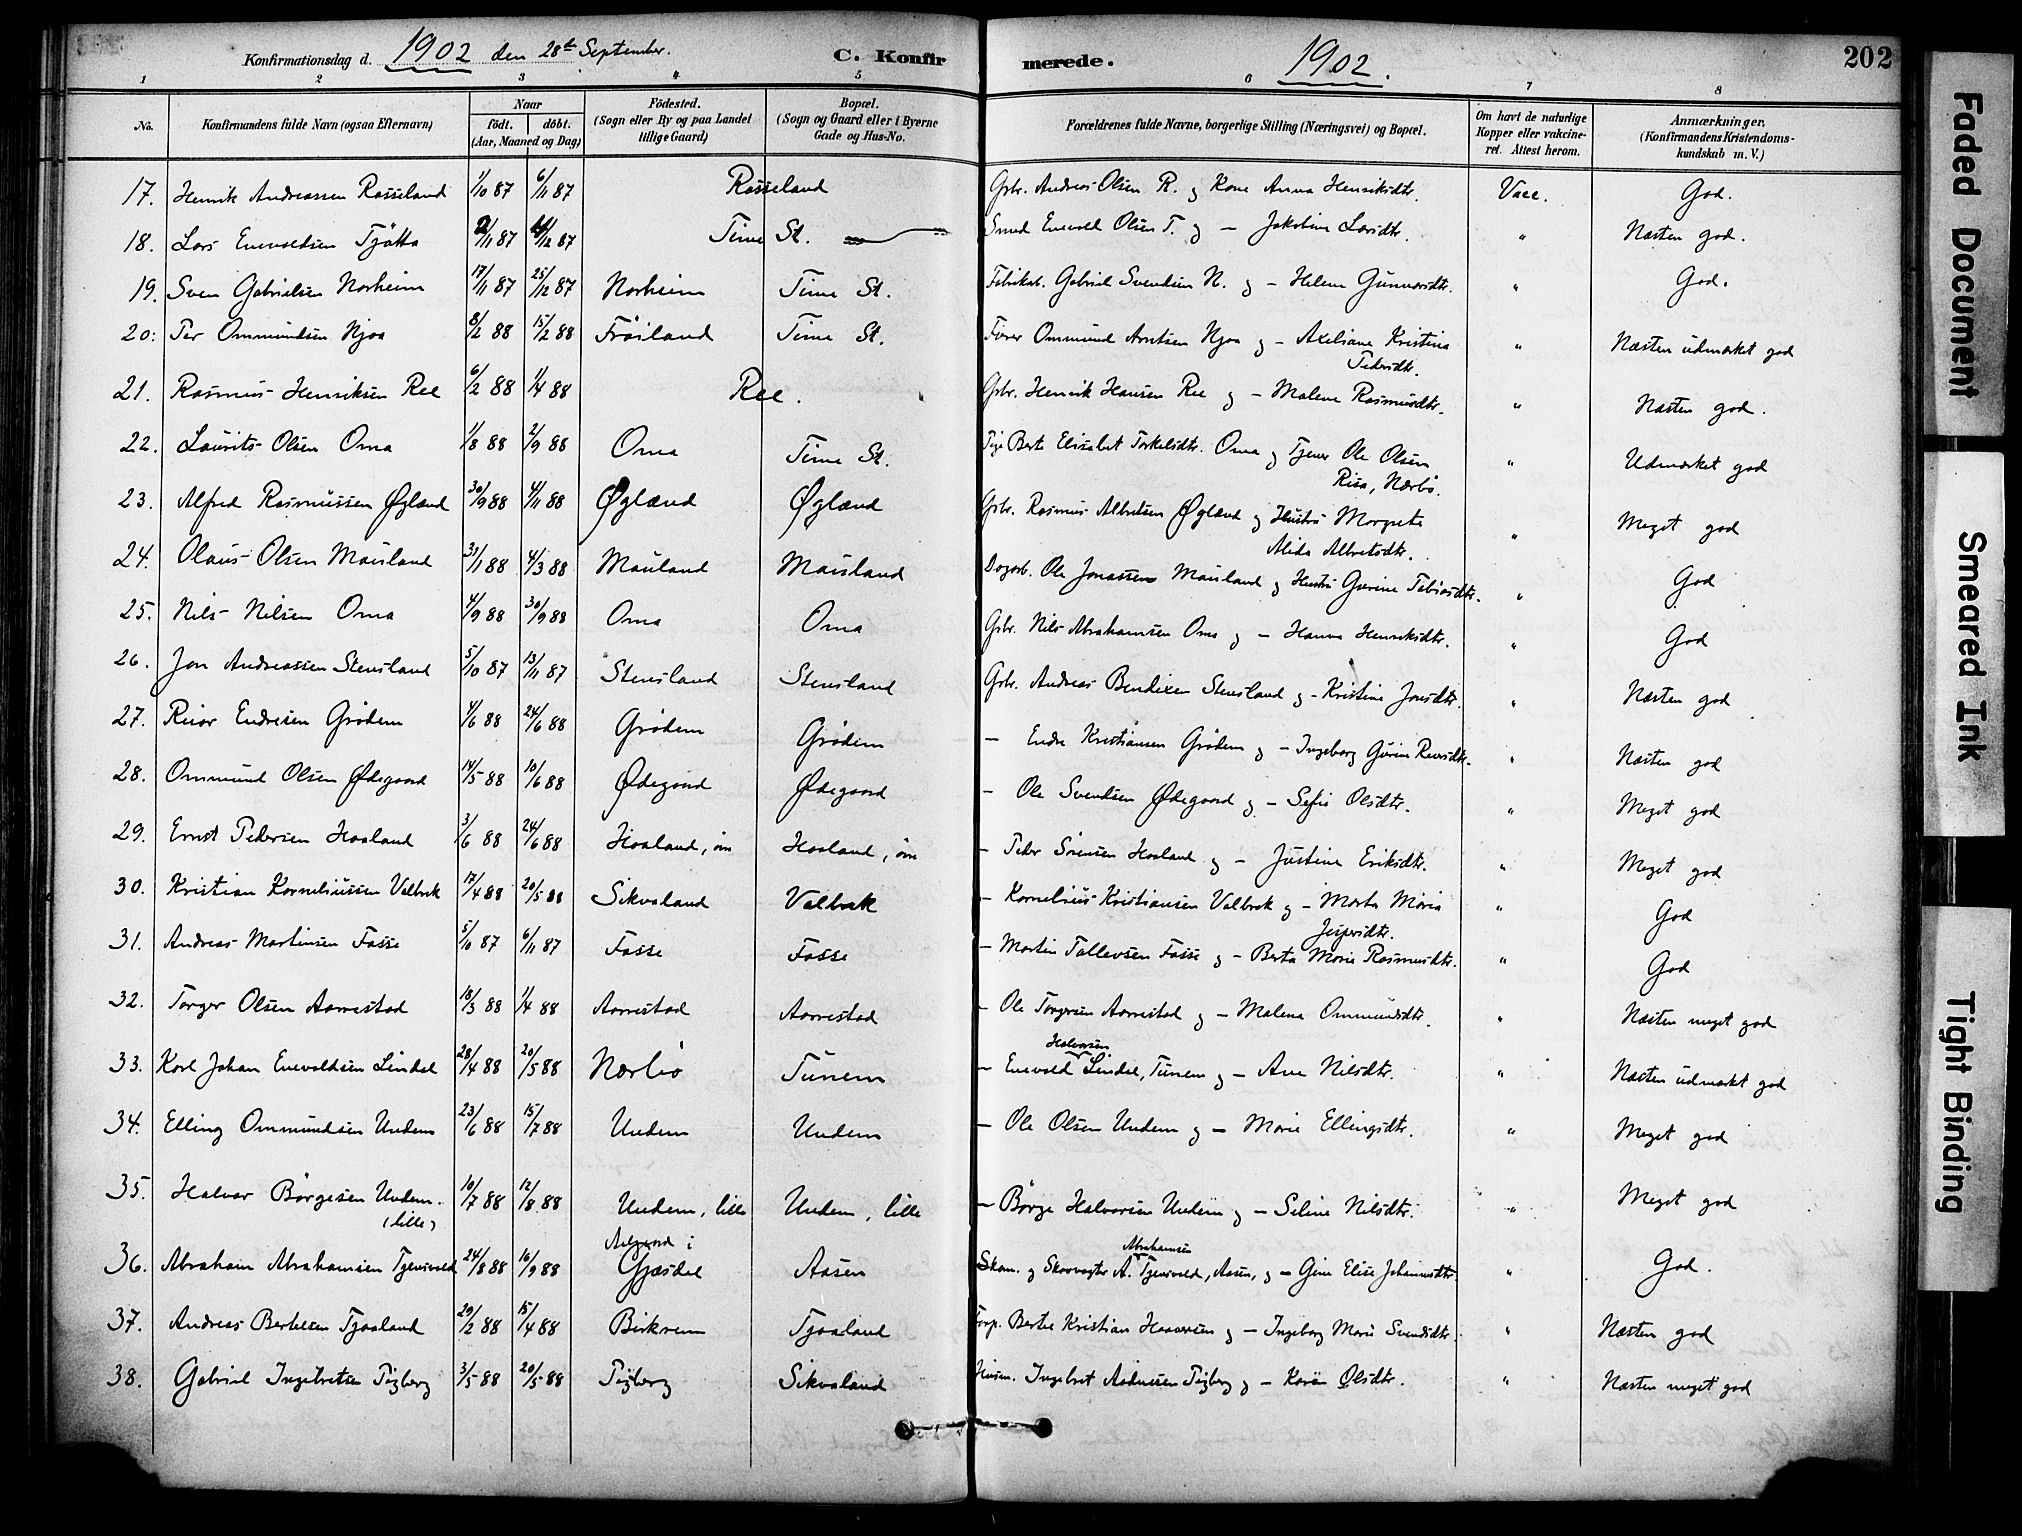 Konfirmationsdag d. 1902 den 28de September. C. Konfirmerede. 1902. 202
1 2 3 4 5 6 7 8
No. Konfirmandens fulde Navn (ogsaa Efternavn) Naar født. døbt. (Aar, Maaned og Dag) Födested. (Sogn eller By og paa Landet tillige Gaard) Bopæl. (Sogn og Gaard eller i Byerne Gade og Hus-No. Forældrenes fulde Navne, borgerlige Stilling (Næringsvei) og Bopæl. Om havt de naturlige Kopper eller vakcineret. Attest herom. Anmærkninger. (Konfirmandens Kristendomskundskab m. V.)
17. Henrik Andreassen Rosseland 1/10 87 6/11 87 Rosseland Gbr. Andreas Olsen R. og Kone Anna Henriksdtr. Vacc. God.
18. Lars Enevoldsen Tjøtta 2/11 87 /12 87 Time St. Smed Enevold Olsen T. og — Jakobine Larsdtr. " Næsten god.
19. Sven Gabrielsen Norheim 17/11 87 25/12 87 Norheim Time St. Fabrikarb. Gabriel Svendsen N. og — Helene Gunnarsdtr. " God.
20. Per Ommundsen Njaa 8/2 88 15/2 88 Fröiland Time St. Ommund Arntsen Njaa og — Axeliane Kristina Pedersdtr. " Næsten udmærket god
21. Rasmus Henriksen Ree 6/2 88 1/4 88 Ree. Gbr. Henrik Hansen Ree og — Malene Rasmusdtr. " Næsten god.
22. Laurits Olsen Oma 1/8 88 2/9 88 Oma Time St. Pige Berte Elisabet Torkelsdtr. Oma og Tjener Ole Olsen Risa, Nærbø. " Udmærket god
23. Alfred Rasmussen Øgland 30/9 88 4/11 88 Øgland Øgland Gbr. Rasmus Albretsen Øgland og Hustru Margrete Alida Albretsdtr. " Meget god
24. Olaus Olsen Mauland 31/1 88 4/3 88 Mauland Mauland Dagarb. Ole Jonassen Mauland og Hustru Gurine Tobiasdtr. " God
25. Nils Nilsen Oma 4/9 88 30/9 88 Oma Oma Gbr. Nils Abrahamsen Oma og — Hanna Henriksdtr. " God
26. Jon Andreassen Stensland 5/10 87 13/11 87 Stensland Stensland Gbr. Andreas Bendixen Stensland og — Kristine Jonsdtr. " Næsten god
27. Reier Endresen Grödem 4/6 88 24/6 88 Grödem Grödem — Endre Kristiansen Grödem og — Ingeborg Gurine Reiersdtr. " Næsten god
28. Ommund Olsen Ødegaard 14/5 88 10/6 88 Ødegaard Ødegaard — Ole Svendsen Ødegaard og — Sofie Olsdtr. " Meget god
29. Ernst Pedersen Haaland 3/6 88 24/6 88 Haaland, Haaland, — Peder Sörensen Haaland og — Justine Eriksdtr. " Meget god
30. Kristian Korneliussen Valbrek 17/4 88 20/5 88 Sikvaland Valbrek — Kornelius Kristiansen Valbrek og — Marta Maria Jespersdtr. " God
31. Andreas Martinsen Fosse 5/10 87 6/11 87 Fosse Fosse — Martin Tollevsen Fosse og — Berta Marie Rasmusdtr. " God
32. Torger Olsen Aarrestad 18/3 88 1/4 88 Aarrestad Aarrestad — Ole Torgersen Aarrestad og — Malena Ommundsdtr. " Næsten meget god
33. Karl Johan Enevoldsen Lindal 28/4 88 20/5 88 Nærbö Tunem — Enevold Halvorsen Lindal, Tunem og — Ane Nilsdtr. " Næsten udmærket god
34. Elling Ommundsen Undem 23/6 88 15/7 88 Undem Undem — Ole Olsen Undem og — Marie Ellingsdtr. " Meget god
35. Halvor Börgesen Undem. (lille) 10/7 88 12/8 88 Undem, lille Undem, lille — Börge Halvorsen Undem og — Seline Nilsdtr. " Meget god
36. Abraham Abrahamsen Tjensvold 24/8 88 16/9 88 Aalgaard i Gjæsdal Aasen Skom. og Skovvogter A. Abrahamsen Tjensvold, Aasen, og — Gine Elise Johannesdtr. " God.
37. Andreas Bertelsen Tjaaland 29/2 88 15/4 88 Birkrem Tjaaland Forp. Kristian og — Ingeborg Marie Svendsdtr. " Næsten god
38. Gabriel Ingebretsen Tigberg 3/5 88 20/5 88 Tigberg Sikvaland Husm. Ingebret Aadnesen Tigberg og — Karen Olsdtr. " Næsten meget god
Faded Document
Smeared Ink
Tight Binding